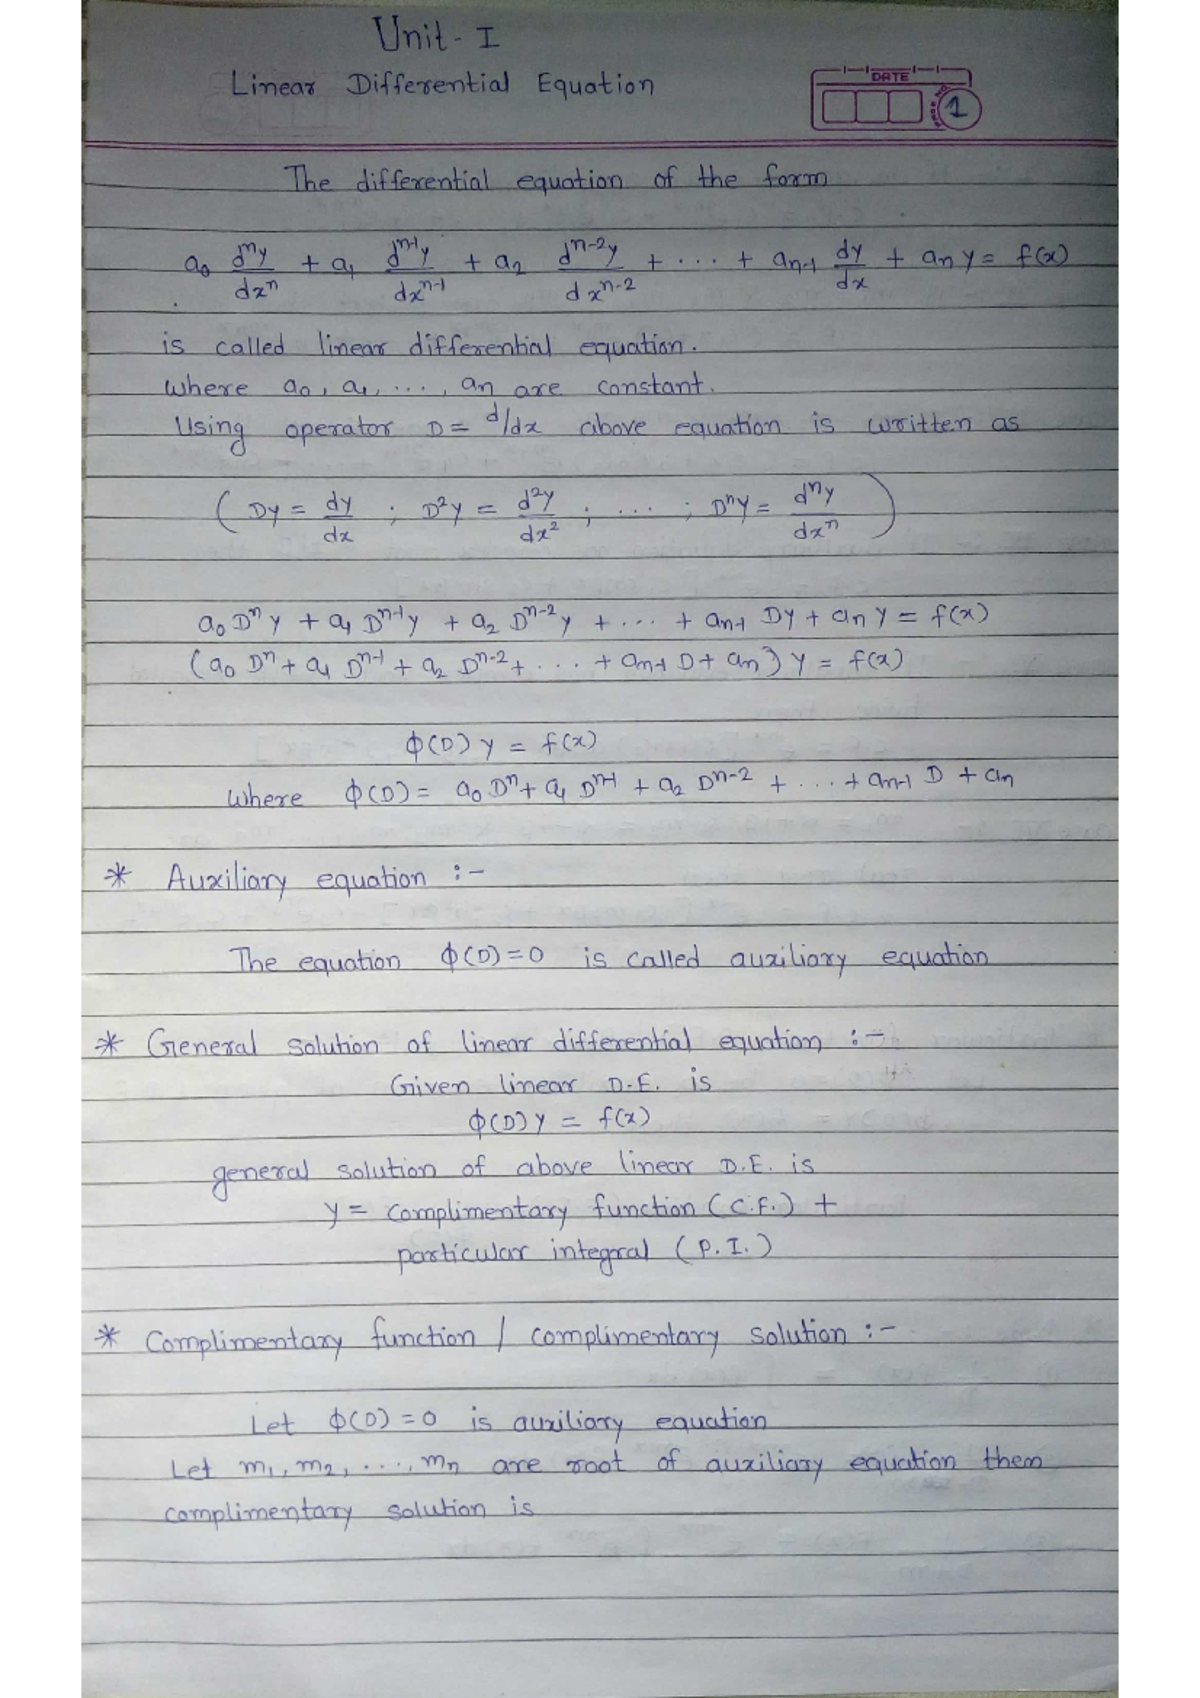 Unit - I
Linear Differential Equation
DATE
1
The differential equation of the form
a₀ dⁿy/dxⁿ + a₁ dⁿ⁻¹y/dxⁿ⁻¹ + a₂ dⁿ⁻²y/dxⁿ⁻² + ... + aₙ₋₁ dy/dx + aₙ y = f(x)
is called linear differential equation.
where a₀, a₁, ..., aₙ are constant.
Using operator D = d/dx above equation is written as
( Dy = dy/dx ; D²y = d²y/dx² ; ... ; Dⁿy = dⁿy/dxⁿ )
a₀ Dⁿy + a₁ Dⁿ⁻¹y + a₂ Dⁿ⁻²y + ... + aₙ₋₁ Dy + aₙ y = f(x)
(a₀ Dⁿ + a₁ Dⁿ⁻¹ + a₂ Dⁿ⁻² + ... + aₙ₋₁ D + aₙ) y = f(x)
ϕ(D) y = f(x)
where ϕ(D) = a₀ Dⁿ + a₁ Dⁿ⁻¹ + a₂ Dⁿ⁻² + ... + aₙ₋₁ D + aₙ
* Auxiliary equation :-
The equation ϕ(D) = 0 is called auxiliary equation
* General solution of linear differential equation :-
Given linear D.E. is
ϕ(D) y = f(x)
general solution of above linear D.E. is
y = complimentary function (C.F.) +
particular integral (P.I.)
* Complimentary function / complimentary solution :-
Let ϕ(D) = 0 is auxiliary equation
Let m₁, m₂, ..., mₙ are root of auxiliary equation then
complimentary solution is